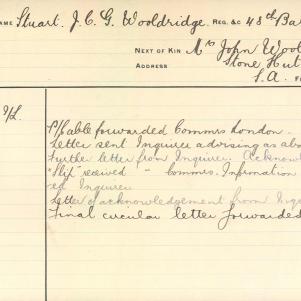 NAME Stuart. J. C. G. Wooldridge. REG. &c 48th Bat
NEXT OF KIN Mrs John Wool
ADDRESS Stone Hut
S.A.
P/Cable forwarded Commrs London.
Letter sent Inquirer advising as abo
Further letter from Inquirer. Acknowl
"Slip" received " Commrs. Infromation
Inquirer
Letter of acknowledgement from Inqu
Final circular letter forwarded